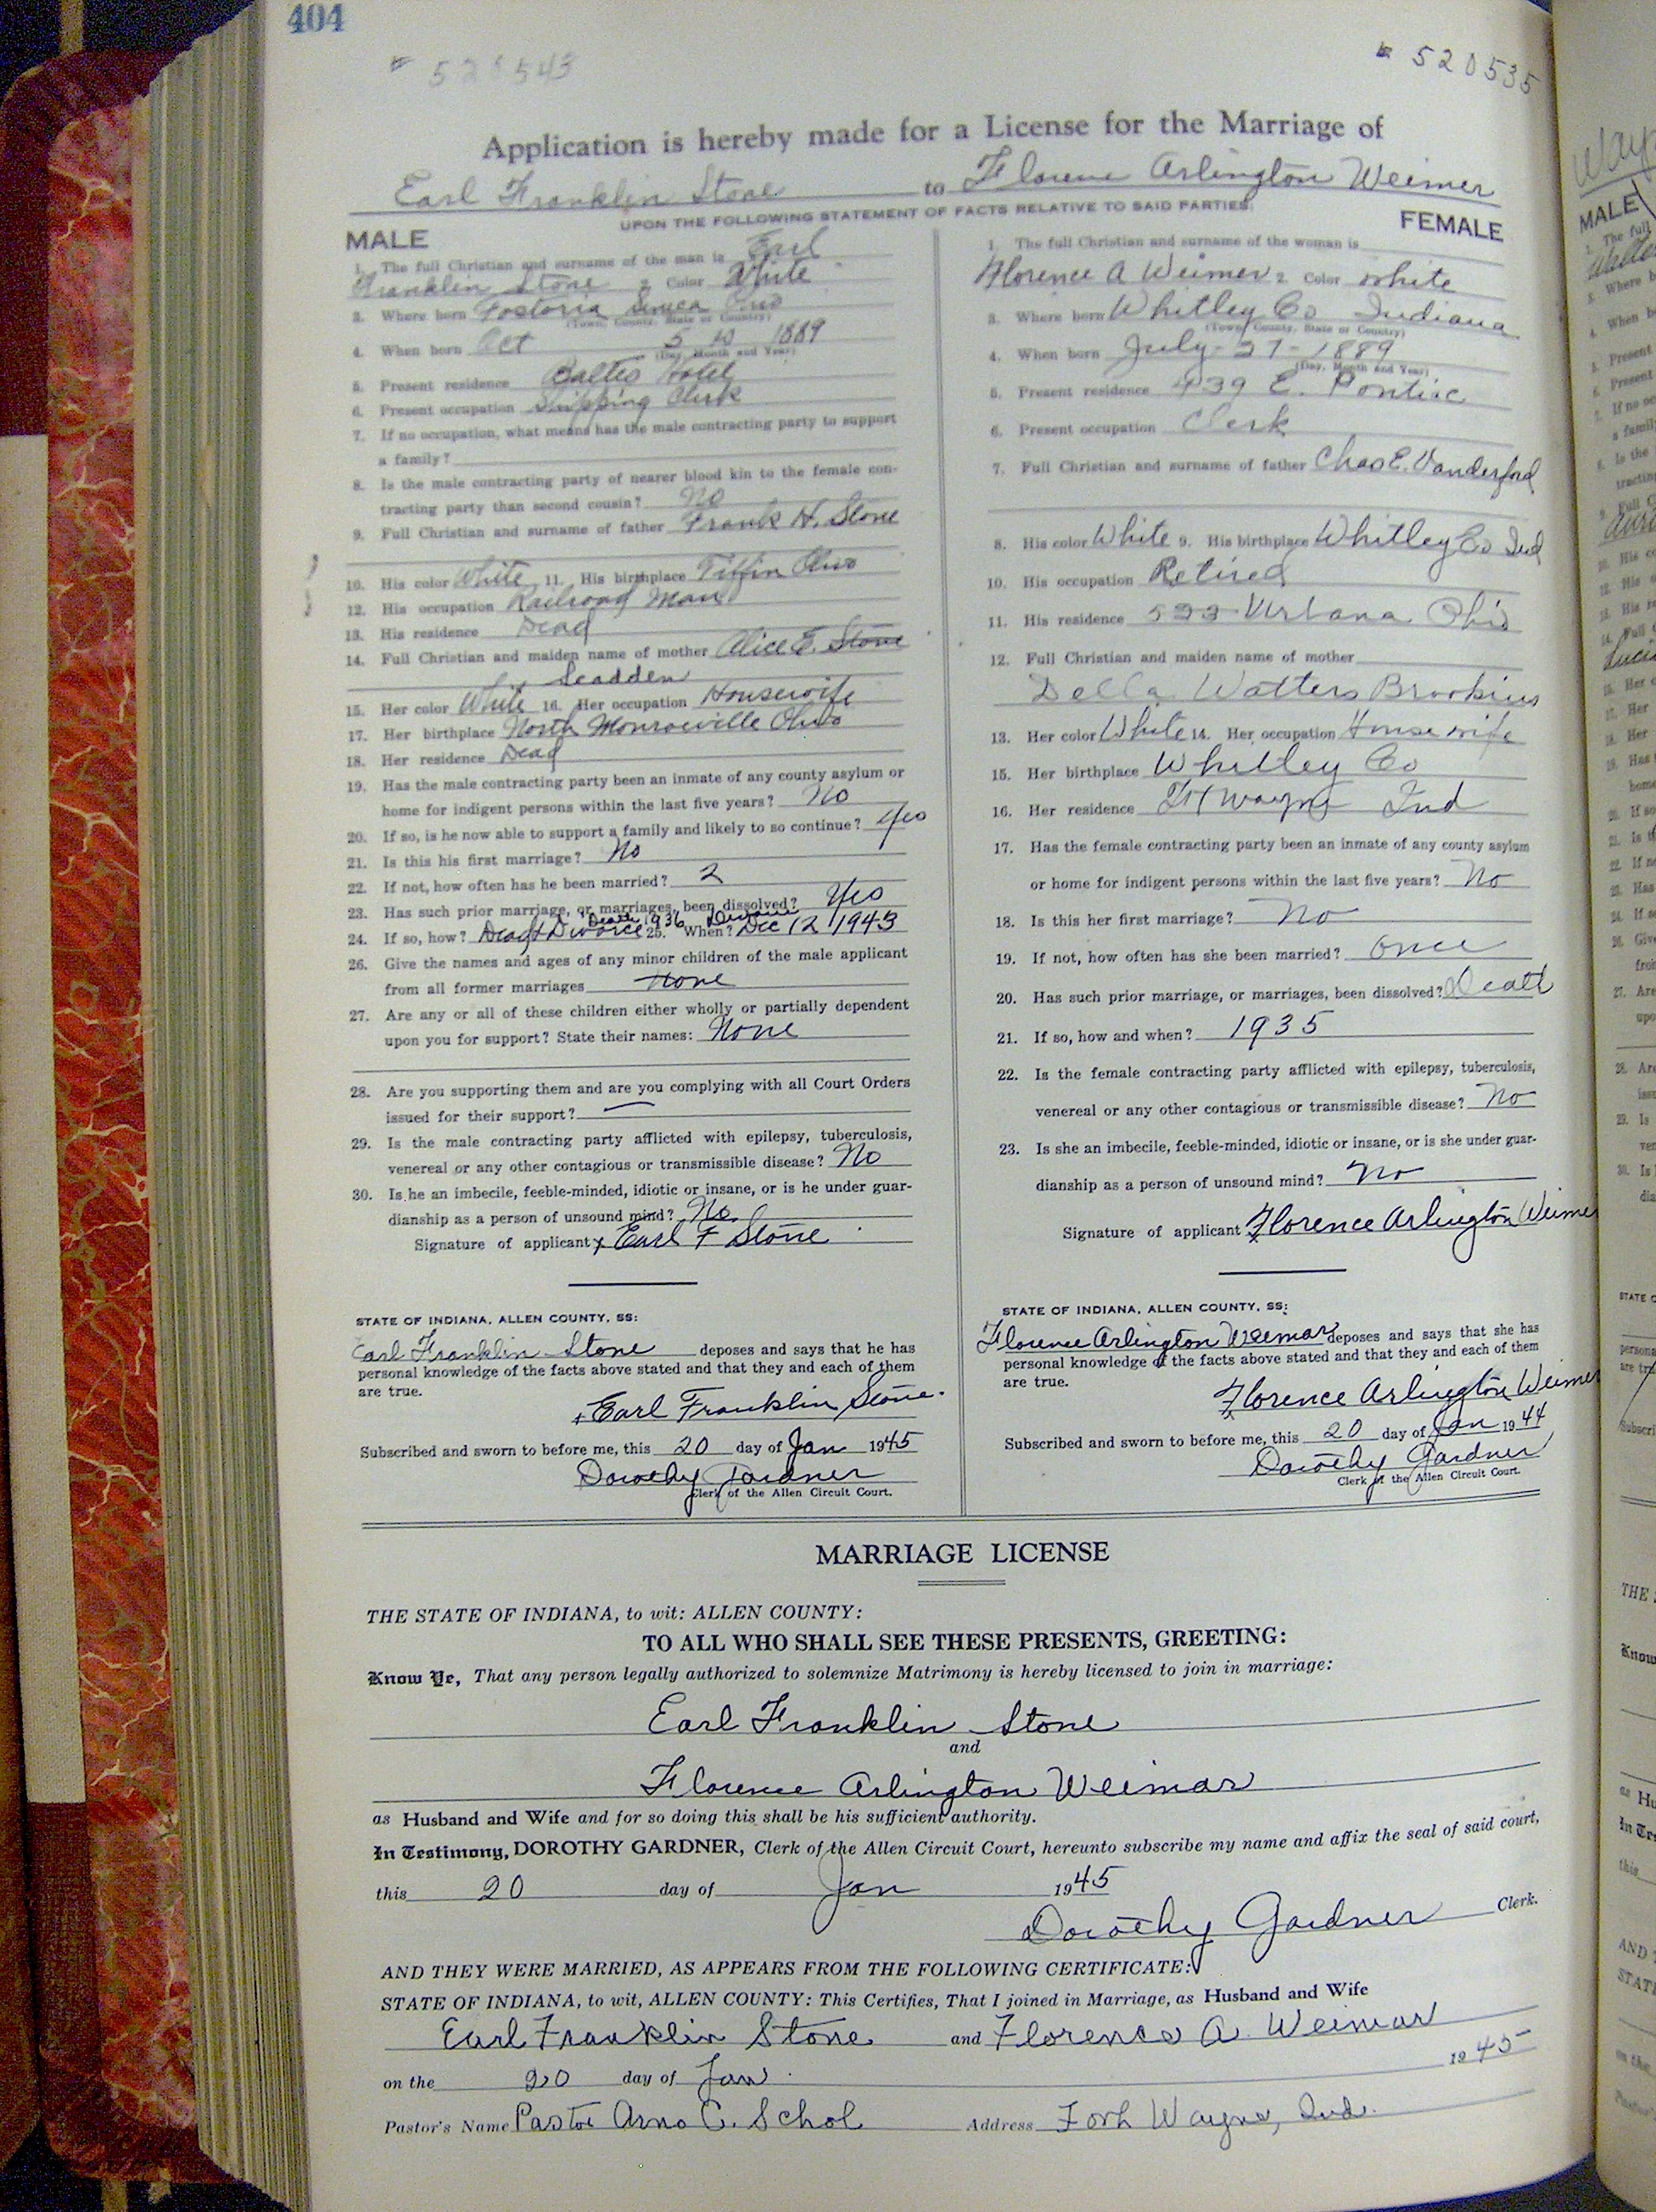 404
# 520535
Application is hereby made for a License for the Marriage of
Earl Franklin Stone to Florence Arlington Weimer
UPON THE FOLLOWING STATEMENT OF FACTS RELATIVE TO SAID PARTIES:
MALE
1. The full Christian and surname of the man is Earl
Franklin Stone 2. Color White
3. Where born Fostoria Seneca Ohio
(Town, County, State or Country)
4. When born Oct 5 10 1889
(Day, Month and Year)
5. Present residence Baltes Hotel
6. Present occupation Shipping Clerk
7. If no occupation, what means has the male contracting party to support
a family?
8. Is the male contracting party of nearer blood kin to the female con-
tracting party than second cousin? No
9. Full Christian and surname of father Frank H. Stone
10. His color White 11. His birthplace Tiffin Ohio
12. His occupation Railroad Man
13. His residence Dead
14. Full Christian and maiden name of mother Alice E. Stone
Scadden
15. Her color White 16. Her occupation Housewife
17. Her birthplace North Monroeville Ohio
18. Her residence Dead
19. Has the male contracting party been an inmate of any county asylum or
home for indigent persons within the last five years? No
20. If so, is he now able to support a family and likely to so continue? Yes
21. Is this his first marriage? No
22. If not, how often has he been married? 2
23. Has such prior marriage, or marriages, been dissolved? Yes
Death 1936 Divorce
24. If so, how? Death Divorce 25. When? Dec 12 1943
26. Give the names and ages of any minor children of the male applicant
from all former marriages None
27. Are any or all of these children either wholly or partially dependent
upon you for support? State their names: None
28. Are you supporting them and are you complying with all Court Orders
issued for their support? —
29. Is the male contracting party afflicted with epilepsy, tuberculosis,
venereal or any other contagious or transmissible disease? No
30. Is he an imbecile, feeble-minded, idiotic or insane, or is he under guar-
dianship as a person of unsound mind? No
Signature of applicant x Earl F Stone
STATE OF INDIANA, ALLEN COUNTY, SS:
Earl Franklin Stone deposes and says that he has
personal knowledge of the facts above stated and that they and each of them
are true.
x Earl Franklin Stone.
Subscribed and sworn to before me, this 20 day of Jan 1945
Dorothy Gardner
Clerk of the Allen Circuit Court.
FEMALE
1. The full Christian and surname of the woman is
Florence A Weimer 2. Color White
3. Where born Whitley Co Indiana
(Town, County, State or Country)
4. When born July-27-1889
(Day, Month and Year)
5. Present residence 439 E. Pontiac
6. Present occupation Clerk
7. Full Christian and surname of father Chas E. Vanderford
8. His color White 9. His birthplace Whitley Co Ind
10. His occupation Retired
11. His residence 533 Urbana Ohio
12. Full Christian and maiden name of mother
Della Watters Brookins
13. Her color White 14. Her occupation Housewife
15. Her birthplace Whitley Co
16. Her residence Ft Wayne Ind
17. Has the female contracting party been an inmate of any county asylum
or home for indigent persons within the last five years? No
18. Is this her first marriage? No
19. If not, how often has she been married? once
20. Has such prior marriage, or marriages, been dissolved? Death
21. If so, how and when? 1935
22. Is the female contracting party afflicted with epilepsy, tuberculosis,
venereal or any other contagious or transmissible disease? No
23. Is she an imbecile, feeble-minded, idiotic or insane, or is she under guar-
dianship as a person of unsound mind? No
Signature of applicant x Florence Arlington Weimer
STATE OF INDIANA, ALLEN COUNTY, SS:
Florence Arlington Weimar deposes and says that she has
personal knowledge of the facts above stated and that they and each of them
are true.
x Florence Arlington Weimer
Subscribed and sworn to before me, this 20 day of Jan 1944
Dorothy Gardner
Clerk of the Allen Circuit Court.
MARRIAGE LICENSE
THE STATE OF INDIANA, to wit: ALLEN COUNTY:
TO ALL WHO SHALL SEE THESE PRESENTS, GREETING:
Know Ye, That any person legally authorized to solemnize Matrimony is hereby licensed to join in marriage:
Earl Franklin Stone
and
Florence Arlington Weimar
as Husband and Wife and for so doing this shall be his sufficient authority.
In Testimony, DOROTHY GARDNER, Clerk of the Allen Circuit Court, hereunto subscribe my name and affix the seal of said court,
this 20 day of Jan 1945
Dorothy Gardner Clerk.
AND THEY WERE MARRIED, AS APPEARS FROM THE FOLLOWING CERTIFICATE:
STATE OF INDIANA, to wit, ALLEN COUNTY: This Certifies, That I joined in Marriage, as Husband and Wife
Earl Franklin Stone and Florence A. Weimar
on the 20 day of Jan 1945
Pastor's Name Pastor Arno C. Schol Address Fort Wayne, Ind.